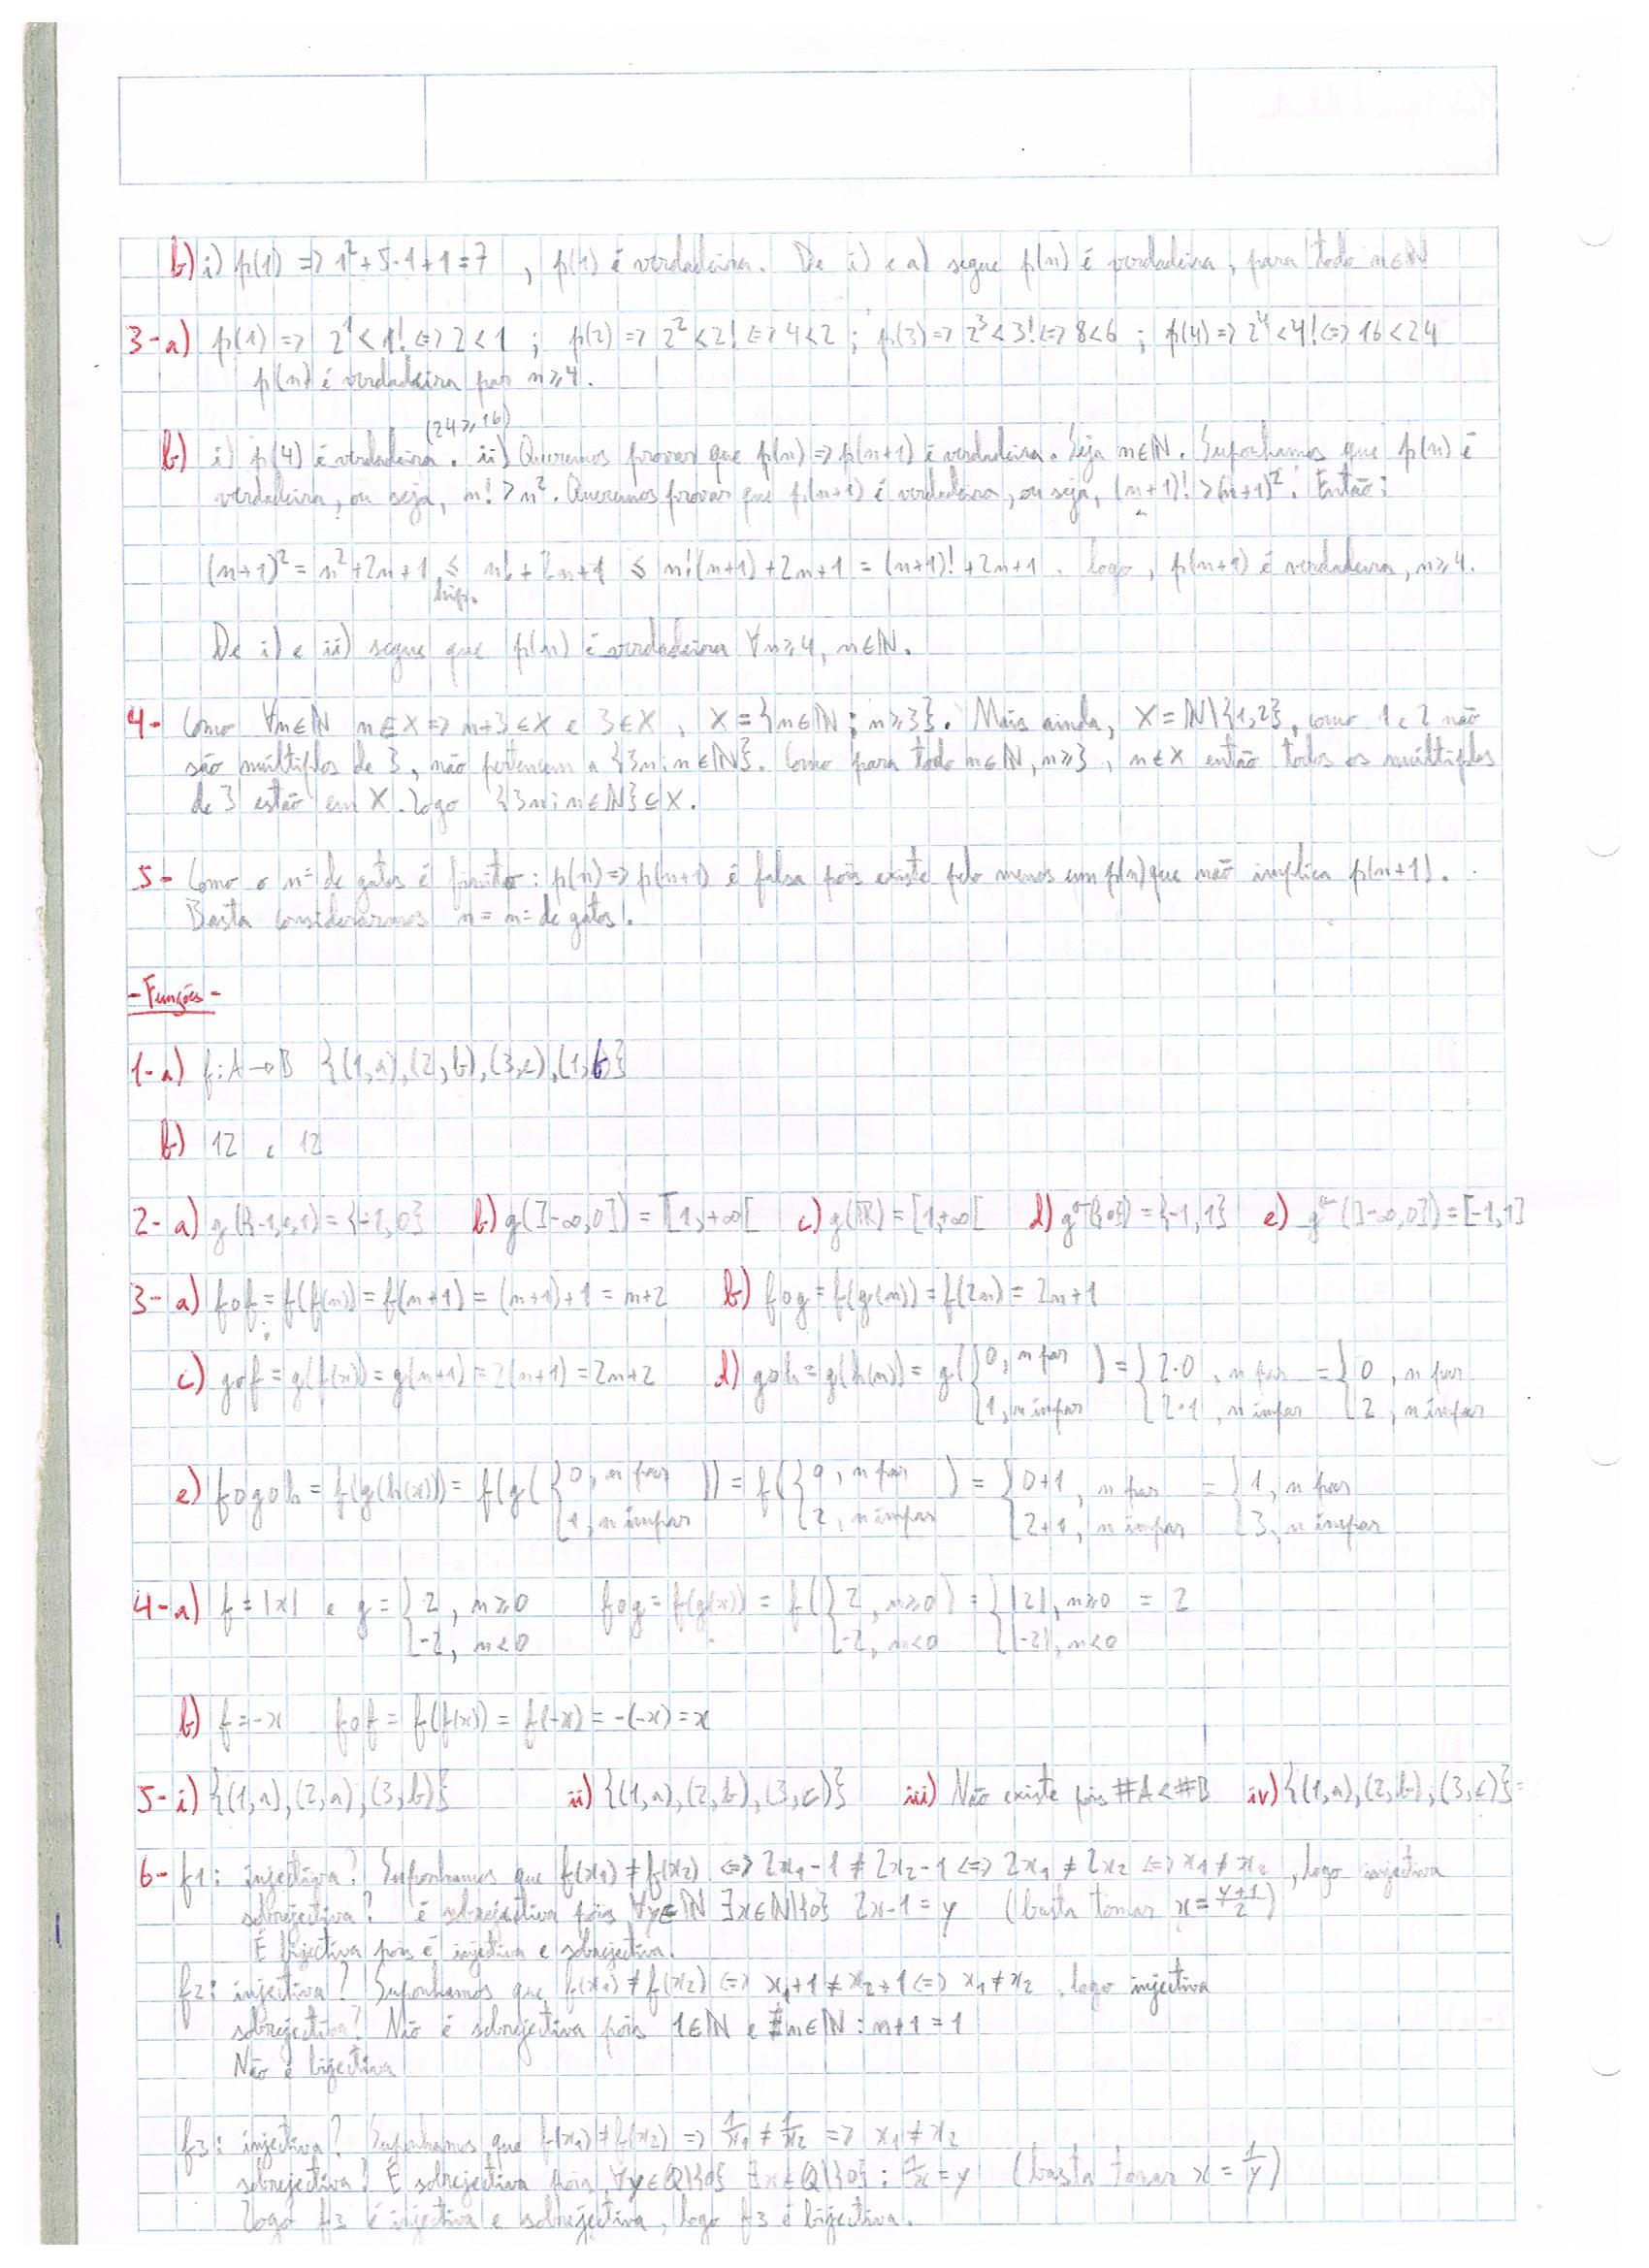 b) i) p(1) => 1²+5·1+1=7 , p(1) é verdadeira. De i) e a) segue p(n) é verdadeira, para todo n∈ℕ
3-a) p(1) => 2¹<1! <=> 2<1 ; p(2) => 2²<2! <=> 4<2 ; p(3) => 2³<3! <=> 8<6 ; p(4) => 2⁴<4! <=> 16<24
p(n) é verdadeira par n≥4.
(24≥16)
b) i) p(4) é verdadeira. ii) Queremos provar que p(n) => p(n+1) é verdadeira. Seja n∈ℕ. Suponhamos que p(n) é
verdadeira, ou seja, n! ≥ n². Queremos provar que p(n+1) é verdadeira, ou seja, (n+1)! ≥ (n+1)². Então:
(n+1)² = n²+2n+1 ≤ n!+2n+1 ≤ n!(n+1)+2n+1 = (n+1)!+2n+1 . Logo, p(n+1) é verdadeira, n≥4.
hip.
De i) e ii) segue que p(n) é verdadeira ∀n≥4, n∈ℕ.
4- Como ∀n∈ℕ n∈X => n+3∈X e 3∈X, X={n∈ℕ: n≥3}. Mais ainda, X=ℕ\{1,2}, como 1 e 2 não
são múltiplos de 3, não pertencem a {3n: n∈ℕ}. Como para todo n∈ℕ, n≥3, n∈X então todos os múltiplos
de 3 estão em X. Logo {3n: n∈ℕ}⊆X.
5- Como o nº de gatos é finito: p(n) => p(n+1) é falsa pois existe pelo menos um p(n) que não implica p(n+1).
Basta considerarmos n = nº de gatos.
- Funções -
1-a) f:A→B {(1,a),(2,b),(3,c),(1,b)}
b) 12 e 12
2-a) g({-1,0,1})={-1,0} b) g(]-∞,0])=[1,+∞[ c) g(ℝ)=[1,+∞[ d) g←({0})={-1,1} e) g←(]-∞,0])=[-1,1]
3-a) fof = f(f(n)) = f(n+1) = (n+1)+1 = n+2 b) fog = f(g(n)) = f(2n) = 2n+1
c) gof = g(f(x)) = g(n+1) = 2(n+1) = 2n+2 d) goh = g(h(n)) = g({0, n par ) = {2·0 , n par = {0 , n par
1, n ímpar 2·1 , n ímpar 2 , n ímpar
e) fogoh = f(g(h(x))) = f(g({0, n par )) = f({0, n par ) = {0+1 , n par = {1, n par
1, n ímpar 2, n ímpar 2+1, n ímpar 3, n ímpar
4-a) f=|x| e g={2, n≥0 fog = f(g(x)) = f({2, n≥0) = {|2|, n≥0 = 2
-2, n<0 -2, n<0 |-2|, n<0
b) f=-x fof = f(f(x)) = f(-x) = -(-x) = x
5-i) {(1,a),(2,a),(3,b)} ii) {(1,a),(2,b),(3,c)} iii) Não existe pois #A<#B iv) {(1,a),(2,b),(3,c)}
6- f1: injectiva? Suponhamos que f(x₁)≠f(x₂) <=> 2x₁-1≠2x₂-1 <=> 2x₁≠2x₂ <=> x₁≠x₂ , logo injectiva
sobrejectiva? é sobrejectiva pois ∀y∈ℕ ∃x∈ℕ\{0} 2x-1=y (basta tomar x=(y+1)/2)
É bijectiva pois é injectiva e sobrejectiva.
f2: injectiva? Suponhamos que f(x₁)≠f(x₂) <=> x₁+1≠x₂+1 <=> x₁≠x₂ , logo injectiva
sobrejectiva? Não é sobrejectiva pois 1∈ℕ e ∄n∈ℕ: n+1=1
Não é bijectiva
f3: injectiva? Suponhamos que f(x₁)≠f(x₂) => 1/x₁ ≠ 1/x₂ => x₁≠x₂
sobrejectiva? É sobrejectiva pois ∀y∈ℚ\{0} ∃x∈ℚ\{0}: 1/x=y (basta tomar x=1/y)
Logo f3 é injectiva e sobrejectiva, logo f3 é bijectiva.